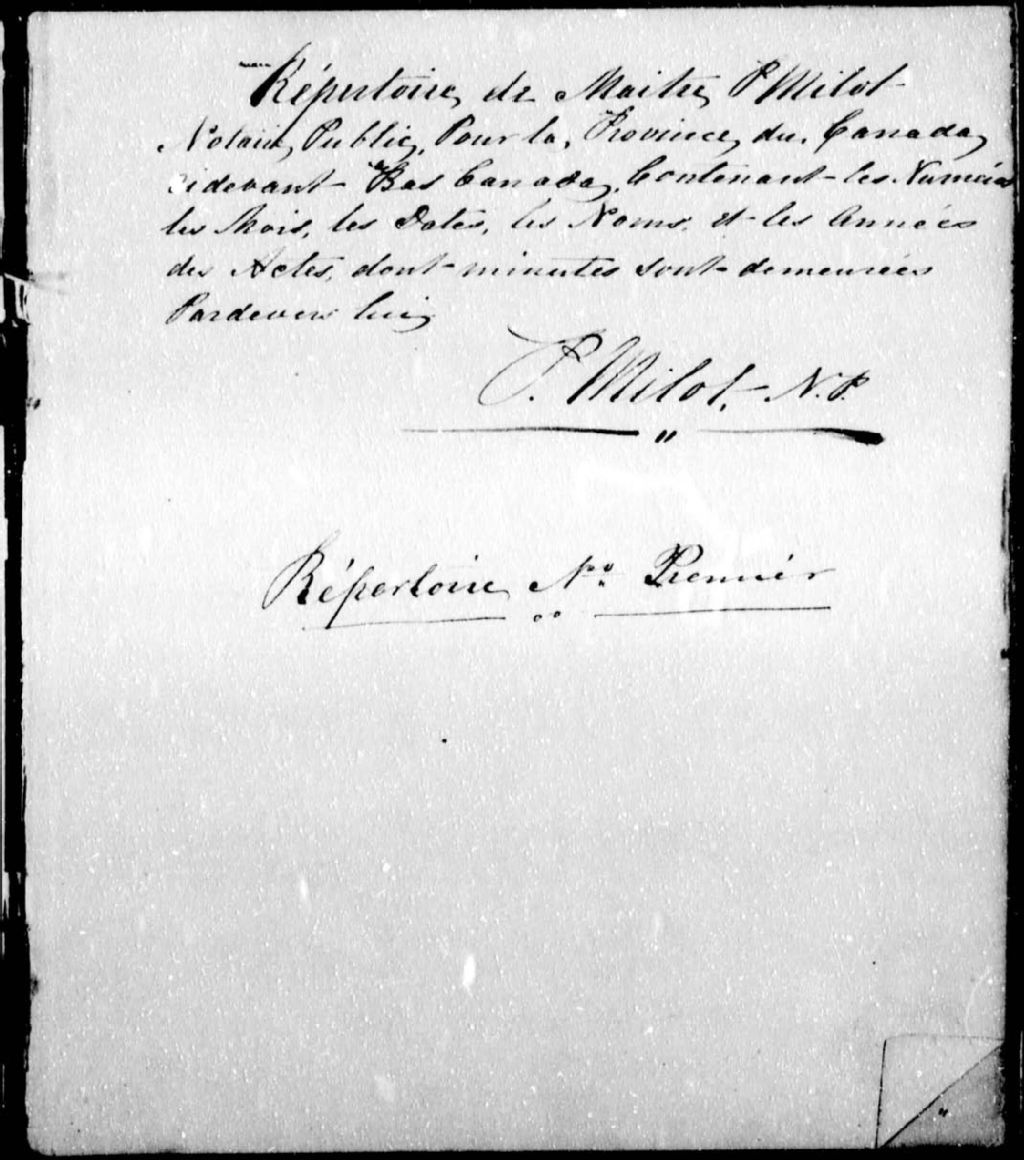 Répertoire de Maitre P Milot
Notaire Public, Pour la, Province du, Canada,
cidevant Bas Canada, Contenant les Numéros
les Mois, les Dates, les Noms, et les Années
des Actes, dont minutes sont demeurées
Pardevers lui,
P. Milot, N.P.
Répertoire No. Premier